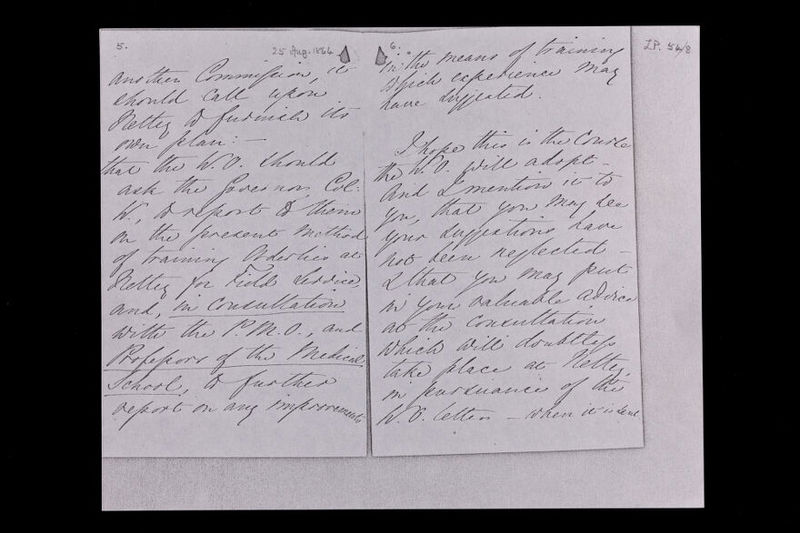 5.
25 Aug. 1864
another Commission, it
should call upon
Netley to furnish its
own plan: –
that the W.O. should
ask the Governor, Col:
W., to report to them
on the present method
of training Orderlies at
Netley for Field Service,
and, in consultation
with the P.M.O., and
Professors of the Medical
School, to further
report on any improvements
6.
in the means of training
which experience may
have suggested.
I hope this is the course
the W.O. will adopt –
And I mention it to
you, that you may see
your suggestions have
not been neglected –
& that you may put
in your valuable advice
at the consultation
which will doubtless
take place at Netley,
in pursuance of this
W.O. letter – when it is sent
LP. 54/8